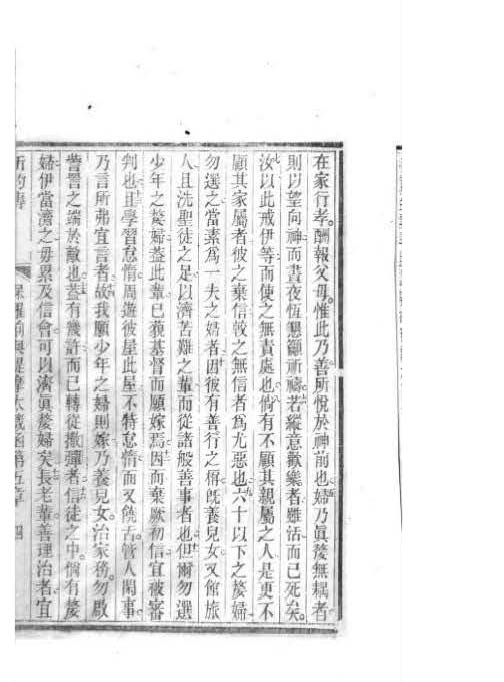 在家行孝。酬報父毋。惟此乃善所悅於神前也婦乃眞嫠無耦者
則以望向神而晝夜恆懇籲祈禱若縱意歡樂者雖活而已死矣。
汝以此戒伊等而使之無責處也倘有不顧其親屬之人是更不
顧其家屬者彼之棄信較之無信者爲尤惡也六十以下之嫠婦
勿選之當素爲一夫之婦者因彼有善行之稱旣養兒女又館旅
人且洗聖徒之足以濟苦難之輩而從諸般善事者也但爾勿選
少年之嫠婦蓋此輩已獲基督而願嫁焉因而棄厥初信宜被審
判也且學習怠惰周遊彼屋此屋不特怠惰而又饒舌管人閒事
乃言所弗宜言者故我願少年之婦則嫁乃養兒女治家務勿啟
訾詈之端於敵也蓋有幾許而已轉從撒殫者信徒之中倘有嫠
婦伊當濟之毋累及信會可以濟眞嫠婦矣長老輩善理治者宜
新約書 保羅前與提摩太幾函第五章 四